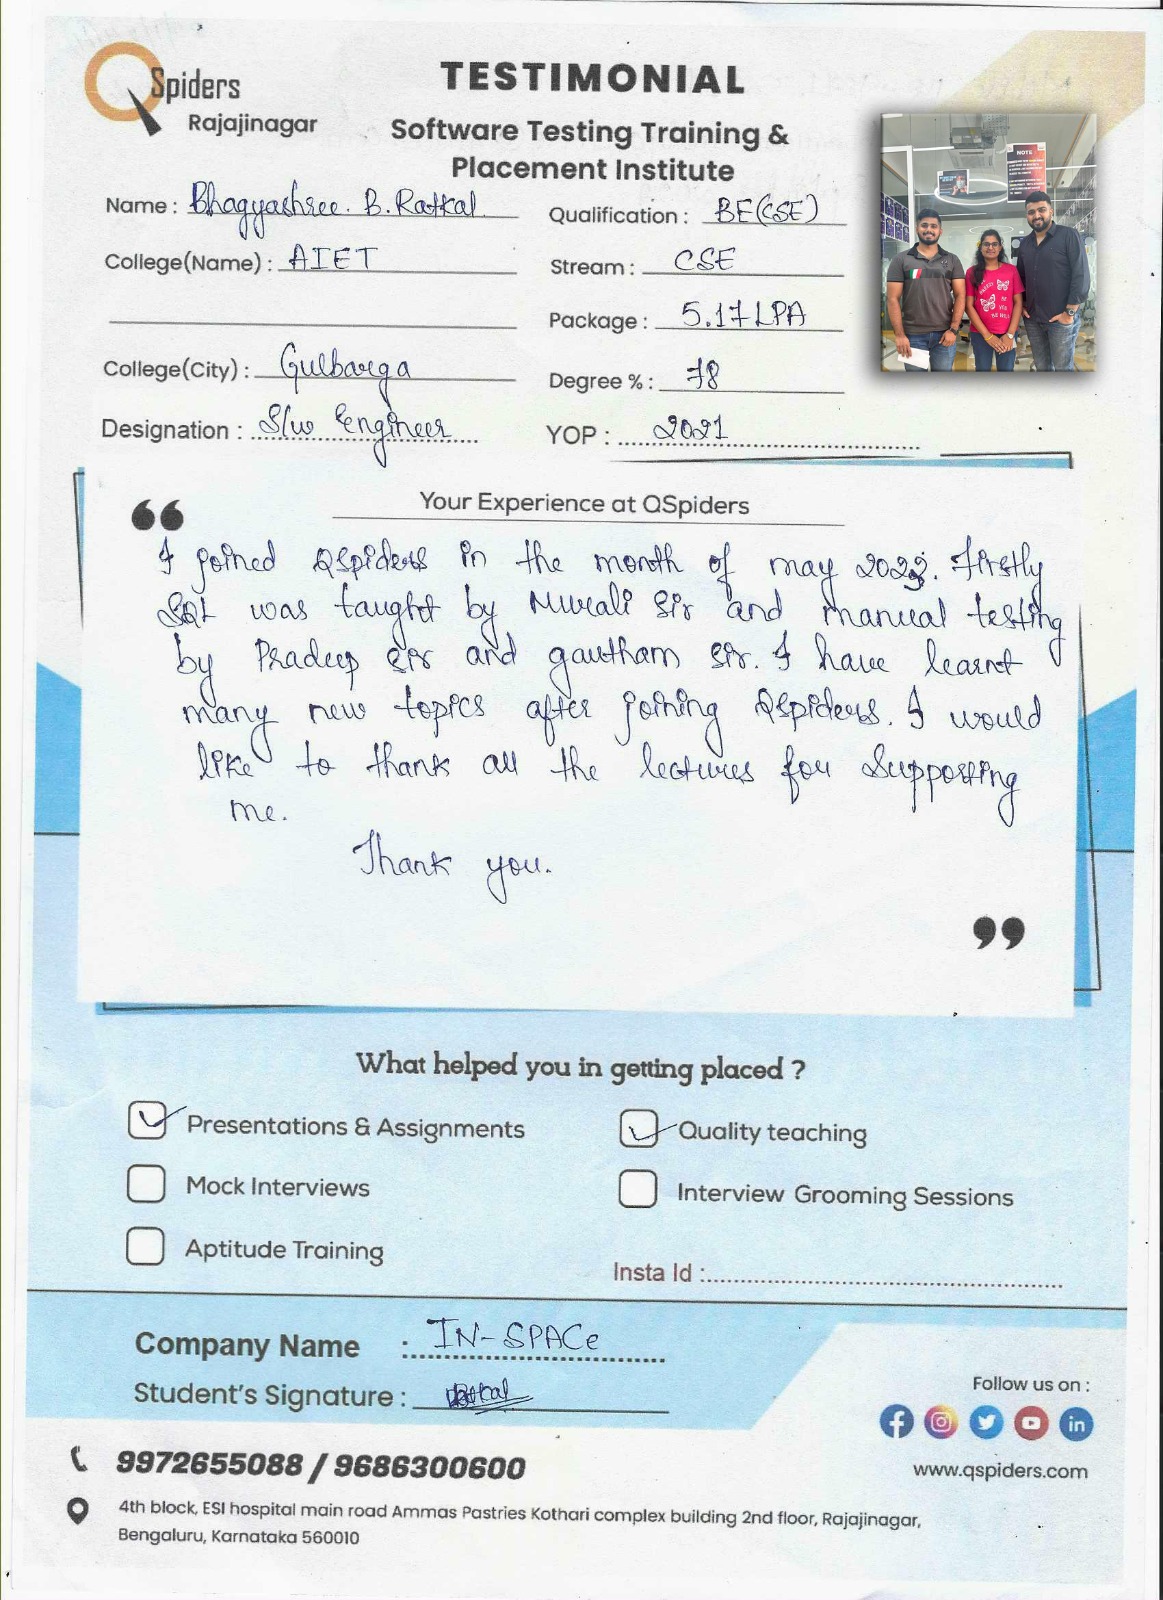 QSpiders
Rajajinagar
TESTIMONIAL
Software Testing Training &
Placement Institute
NOTE
Name : Bhagyashree. B. Ratkal
Qualification : BE(CSE)
College(Name) : AIET
Stream : CSE
Package : 5.17 LPA
College(City) : Gulbarga
Degree % : 78
Designation : S/w Engineer
YOP : 2021
Your Experience at QSpiders
I joined QSpiders in the month of may 2022. Firstly
SQL was taught by Murali sir and manual testing
by Pradeep sir and gautham sir. I have learnt
many new topics after joining QSpiders. I would
like to thank all the lectures for Supporting
me.
Thank you.
What helped you in getting placed ?
Presentations & Assignments
Quality teaching
Mock Interviews
Interview Grooming Sessions
Aptitude Training
Insta Id :
Company Name : IN-SPACe
Student's Signature : Ratkal
Follow us on :
9972655088 / 9686300600
www.qspiders.com
4th block, ESI hospital main road Ammas Pastries Kothari complex building 2nd floor, Rajajinagar,
Bengaluru, Karnataka 560010